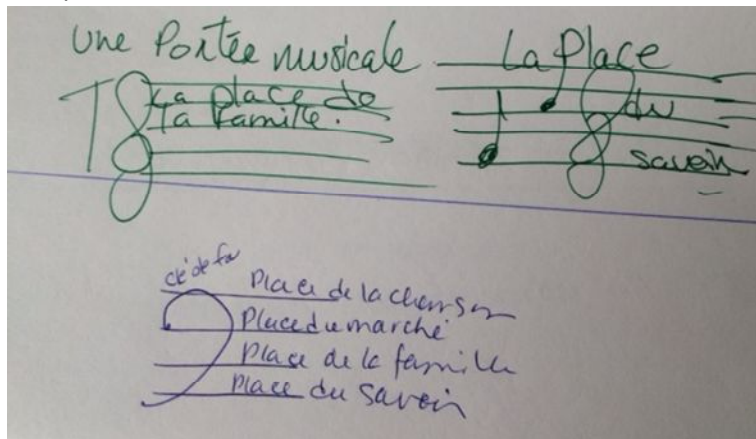 une Portée musicale
La place de
la famille.
La place
du
savoir
clé de fa
Place de la chanson
Place du marché
Place de la famille
Place du savoir